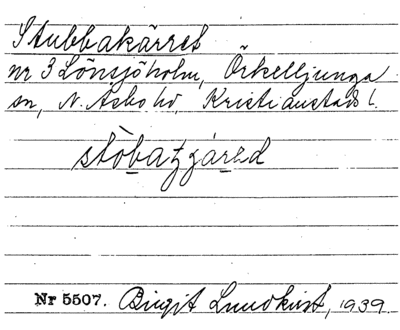 Stubbakärret
nr 3 Lönsjöholm, Örkelljunga
sn, N. Åsbo hd, Kristianstads l.
Nr 5507. Birgit Lundkvist, 1939.